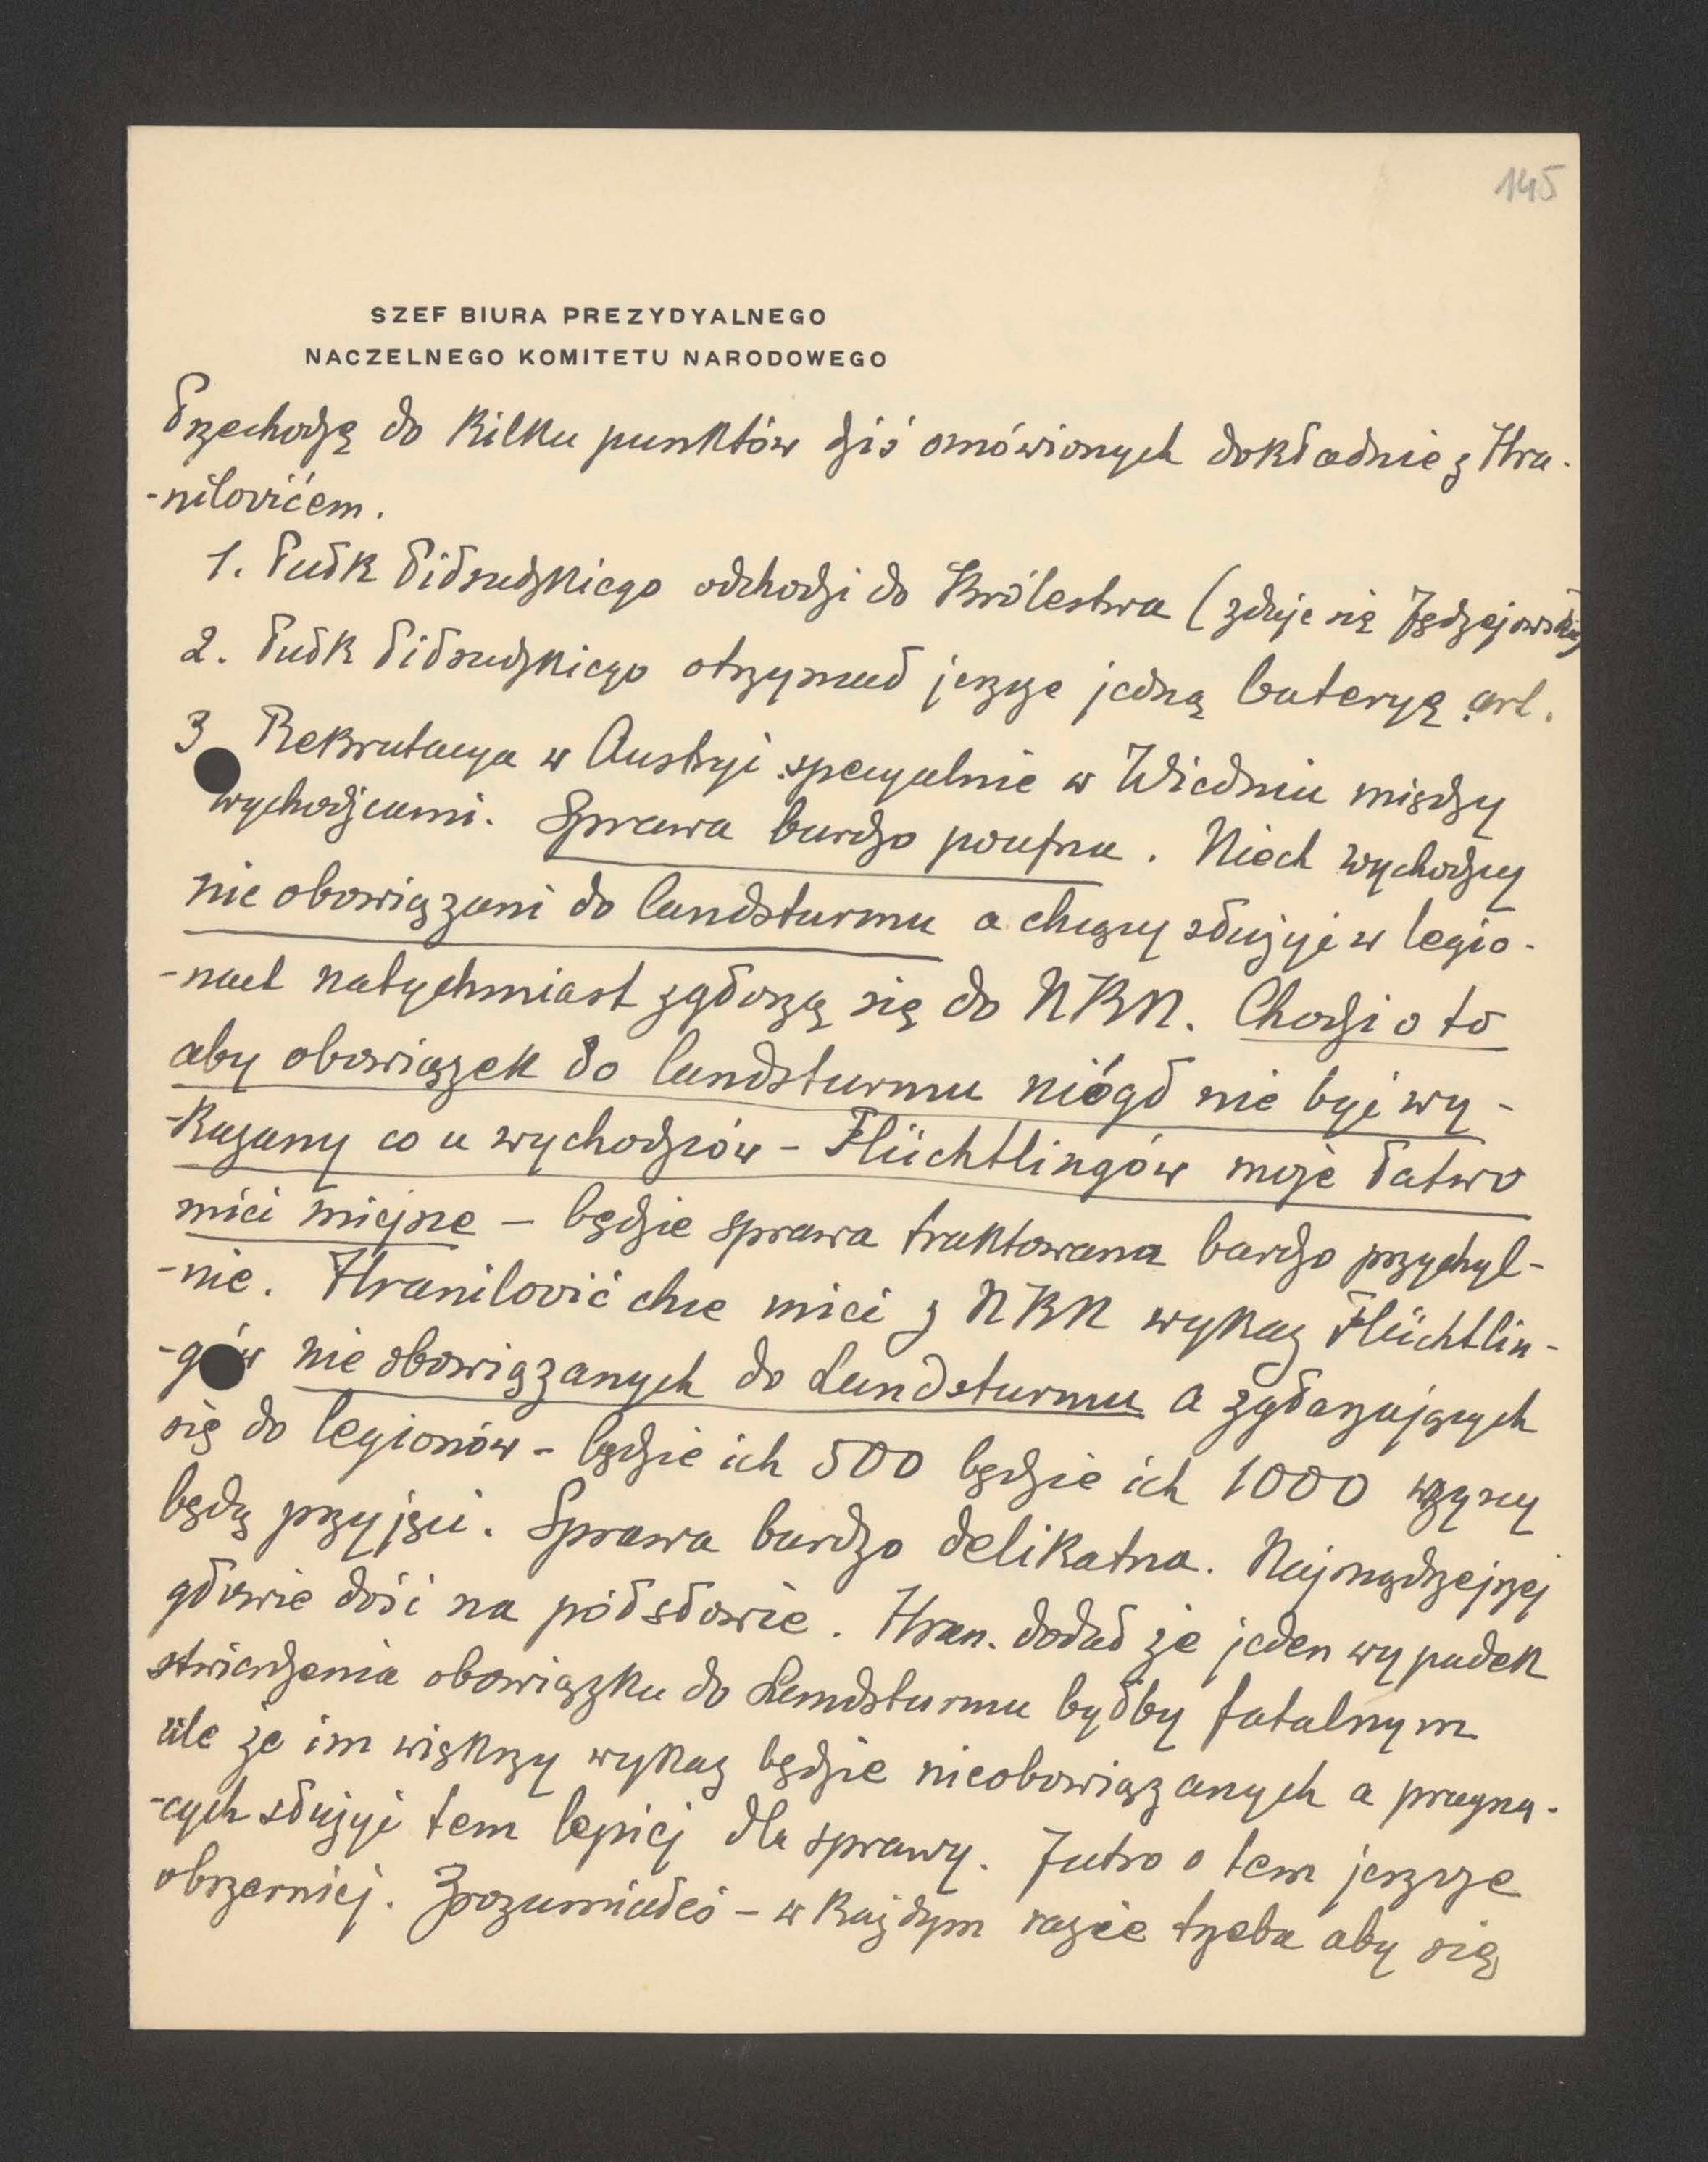 145
SZEF BIURA PREZYDYALNEGO
NACZELNEGO KOMITETU NARODOWEGO
Przechodzę do kilku punktów dziś omówionych dokładnie z Hra-
-nilovićem.
1. Pułk Piłsudzkiego odchodzi do Królestwa (zdaje się Jędzejowskie)
2. Pułk Piłsudzkiego otrzymał jeszcze jedną bateryę art.
3 Rekrutacya w Austryi specyalnie w Wiedniu między
wychodźcami. Sprawa bardzo poufna. Niech wychodźcy
nie obowiązani do landsturmu a chcący służyć w legio-
-nach natychmiast zgłoszą się do NKN. Chodzi o to
aby obowiązek do landsturmu niógł nie być wy-
-kazany co u wychodźców - Flüchtlingów może łatwo
mieć miejsce - będzie sprawa traktowana bardzo przychyl-
-nie. Hranilović chce mieć z NKN wykaz Flüchtlin-
-gów nie obowiązanych do Landsturmu a zgłaszających
się do legionów - będzie ich 500 będzie ich 1000 wszyscy
będą przyjęci. Sprawa bardzo delikatna. Najmądrzejszej
głowie dość na półsłowie. Hran. dodał że jeden wypadek
stwierdzenia obowiązku do Landsturmu byłby fatalnym
ale że im większy wykaz będzie nieobowiązanych a pragną-
-cych służyć tem lepiej dla sprawy. Jutro o tem jeszcze
obszerniej. Zrozumiałeś - w każdym razie trzeba aby się